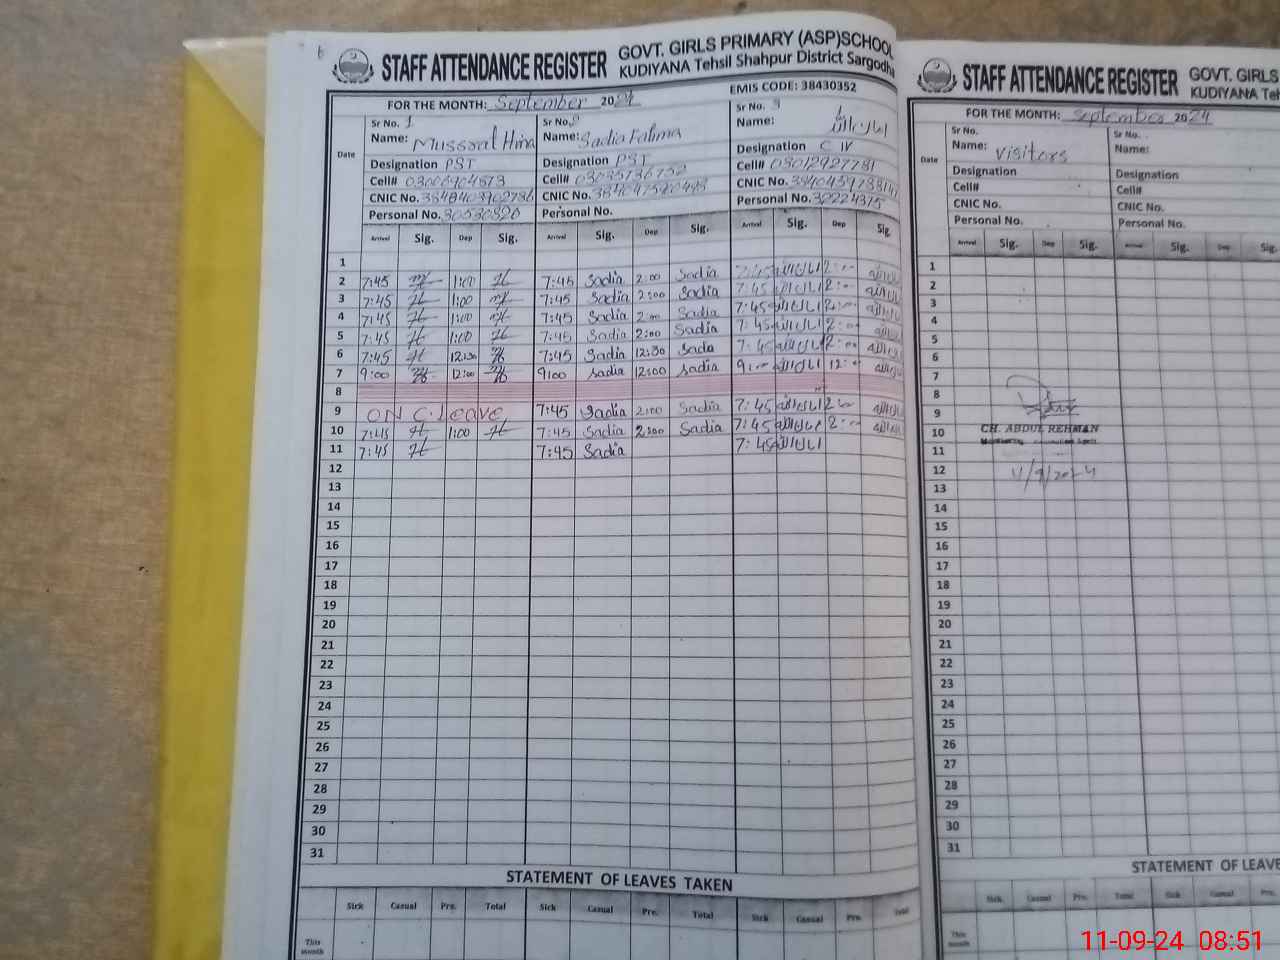 STAFF ATTENDANCE REGISTER GOVT. GIRLS PRIMARY (ASP)SCHOOL
KUDIYANA Tehsil Shahpur District Sargodha
FOR THE MONTH: September 2024 EMIS CODE: 38430352
Date
Sr No. 1
Name: Mussarat Hina
Designation PST
Cell# 03006904573
CNIC No.
Personal No. 30530820
Sr No.
Name: Sadia Fatima
Designation PST
Cell# 03035736752
CNIC No.
Personal No.
Sr No. 3
Name: امان اللہ
Designation C IV
Cell# 03012927781
CNIC No.
Personal No. 32224375
Arrival Sig. Dep Sig. Arrival Sig. Dep Sig. Arrival Sig. Dep Sig.
1
2 7:45 1:00 7:45 Sadia 2:00 Sadia 7:45 امان اللہ 2:00
3 7:45 1:00 7:45 Sadia 2:00 Sadia 7:45 امان اللہ 2:00
4 7:45 1:00 7:45 Sadia 2:00 Sadia 7:45 امان اللہ 2:00
5 7:45 1:00 7:45 Sadia 2:00 Sadia 7:45 امان اللہ 2:00
6 7:45 12:30 7:45 Sadia 12:30 Sada 7:45 امان اللہ 2:00
7 9:00 12:00 9:00 Sadia 12:00 Sadia 9:00 امان اللہ 12:00
8
9 ON C. Leave 7:45 Sadia 2:00 Sadia 7:45 امان اللہ 2:00
10 7:45 1:00 7:45 Sadia 2:00 Sadia 7:45 امان اللہ 2:00
11 7:45 7:45 Sadia 7:45 امان اللہ
12
13
14
15
16
17
18
19
20
21
22
23
24
25
26
27
28
29
30
31
STATEMENT OF LEAVES TAKEN
Sick Casual Prv. Total Sick Casual Prv. Total Sick Casual Prv. Total
This Month
STAFF ATTENDANCE REGISTER GOVT. GIRLS
KUDIYANA
FOR THE MONTH: September 2024
Date
Sr No.
Name: Visitors
Designation
Cell#
CNIC No.
Personal No.
Sr No.
Name:
Designation
Cell#
CNIC No.
Personal No.
Arrival Sig. Dep Sig. Arrival Sig. Dep Sig.
1
2
3
4
5
6
7
8
9
10 CH. ABDUL REHMAN
11
12 11/9/2024
13
14
15
16
17
18
19
20
21
22
23
24
25
26
27
28
29
30
31
STATEMENT OF LEAVE
Sick Casual Prv. Total Sick Casual Prv.
This Month
11-09-24 08:51